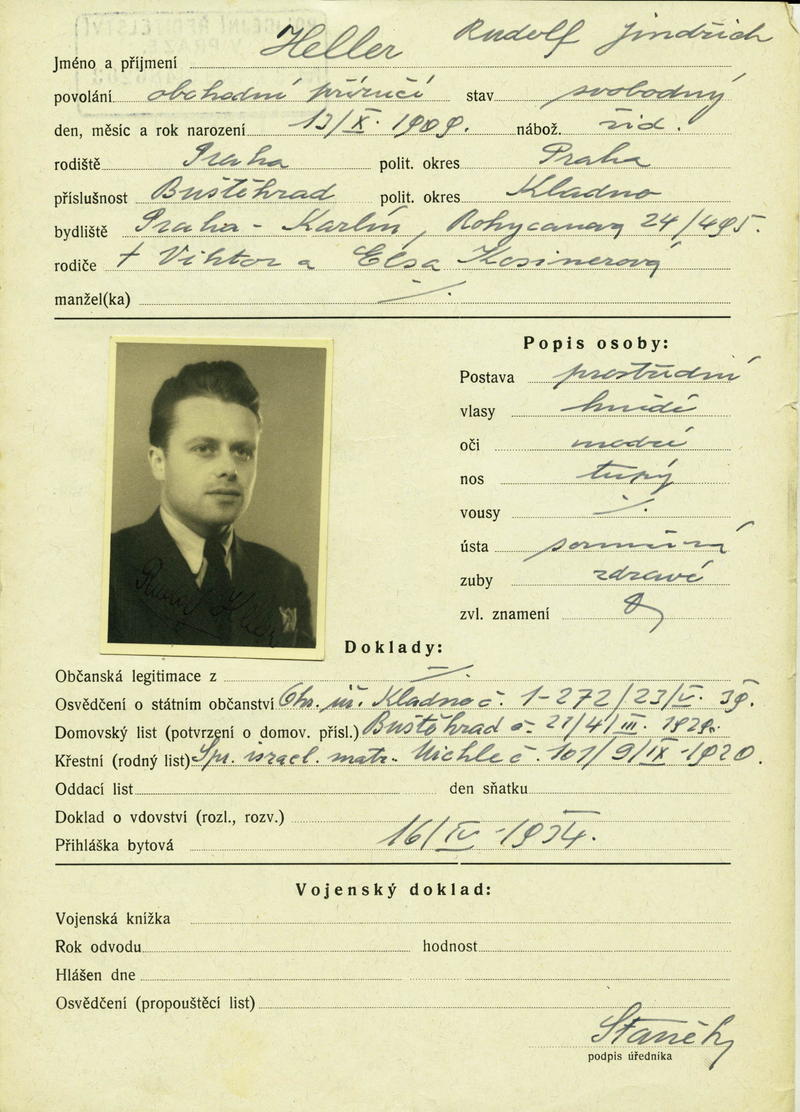 POLICEJNÍ ŘEDITELSTVÍ
V PRAZE
Jméno a příjmení Heller Rudolf Jindřich
povolání obchodní příručí stav svobodný
den, měsíc a rok narození 13/X. 1909. nábož. žid.
rodiště Praha polit. okres Praha
příslušnost Buštěhrad polit. okres Kladno
bydliště Praha - Karlín, Rokycanova 24/495.
rodiče † Viktor a Elsa Kosinerová
manžel(ka) ·/·
Popis osoby:
Postava prostřední
vlasy hnědé
oči modré
nos tupý
vousy ·/·
ústa souměrná
zuby zdravé
zvl. znamení
Doklady:
Občanská legitimace z ·/·
Osvědčení o státním občanství Okr. úř. Kladno č. 1-272/23/V. 39.
Domovský list (potvrzení o domov. přísl.) Buštěhrad č. 21/4/III. 1929.
Křestní (rodný list) Spr. israel. matr. Michle č. 101/9/IX-1920.
Oddací list den sňatku
Doklad o vdovství (rozl., rozv.)
Přihláška bytová 16/IV-1934.
Vojenský doklad:
Vojenská knížka
Rok odvodu hodnost
Hlášen dne
Osvědčení (propouštěcí list)
Staněk
podpis úředníka